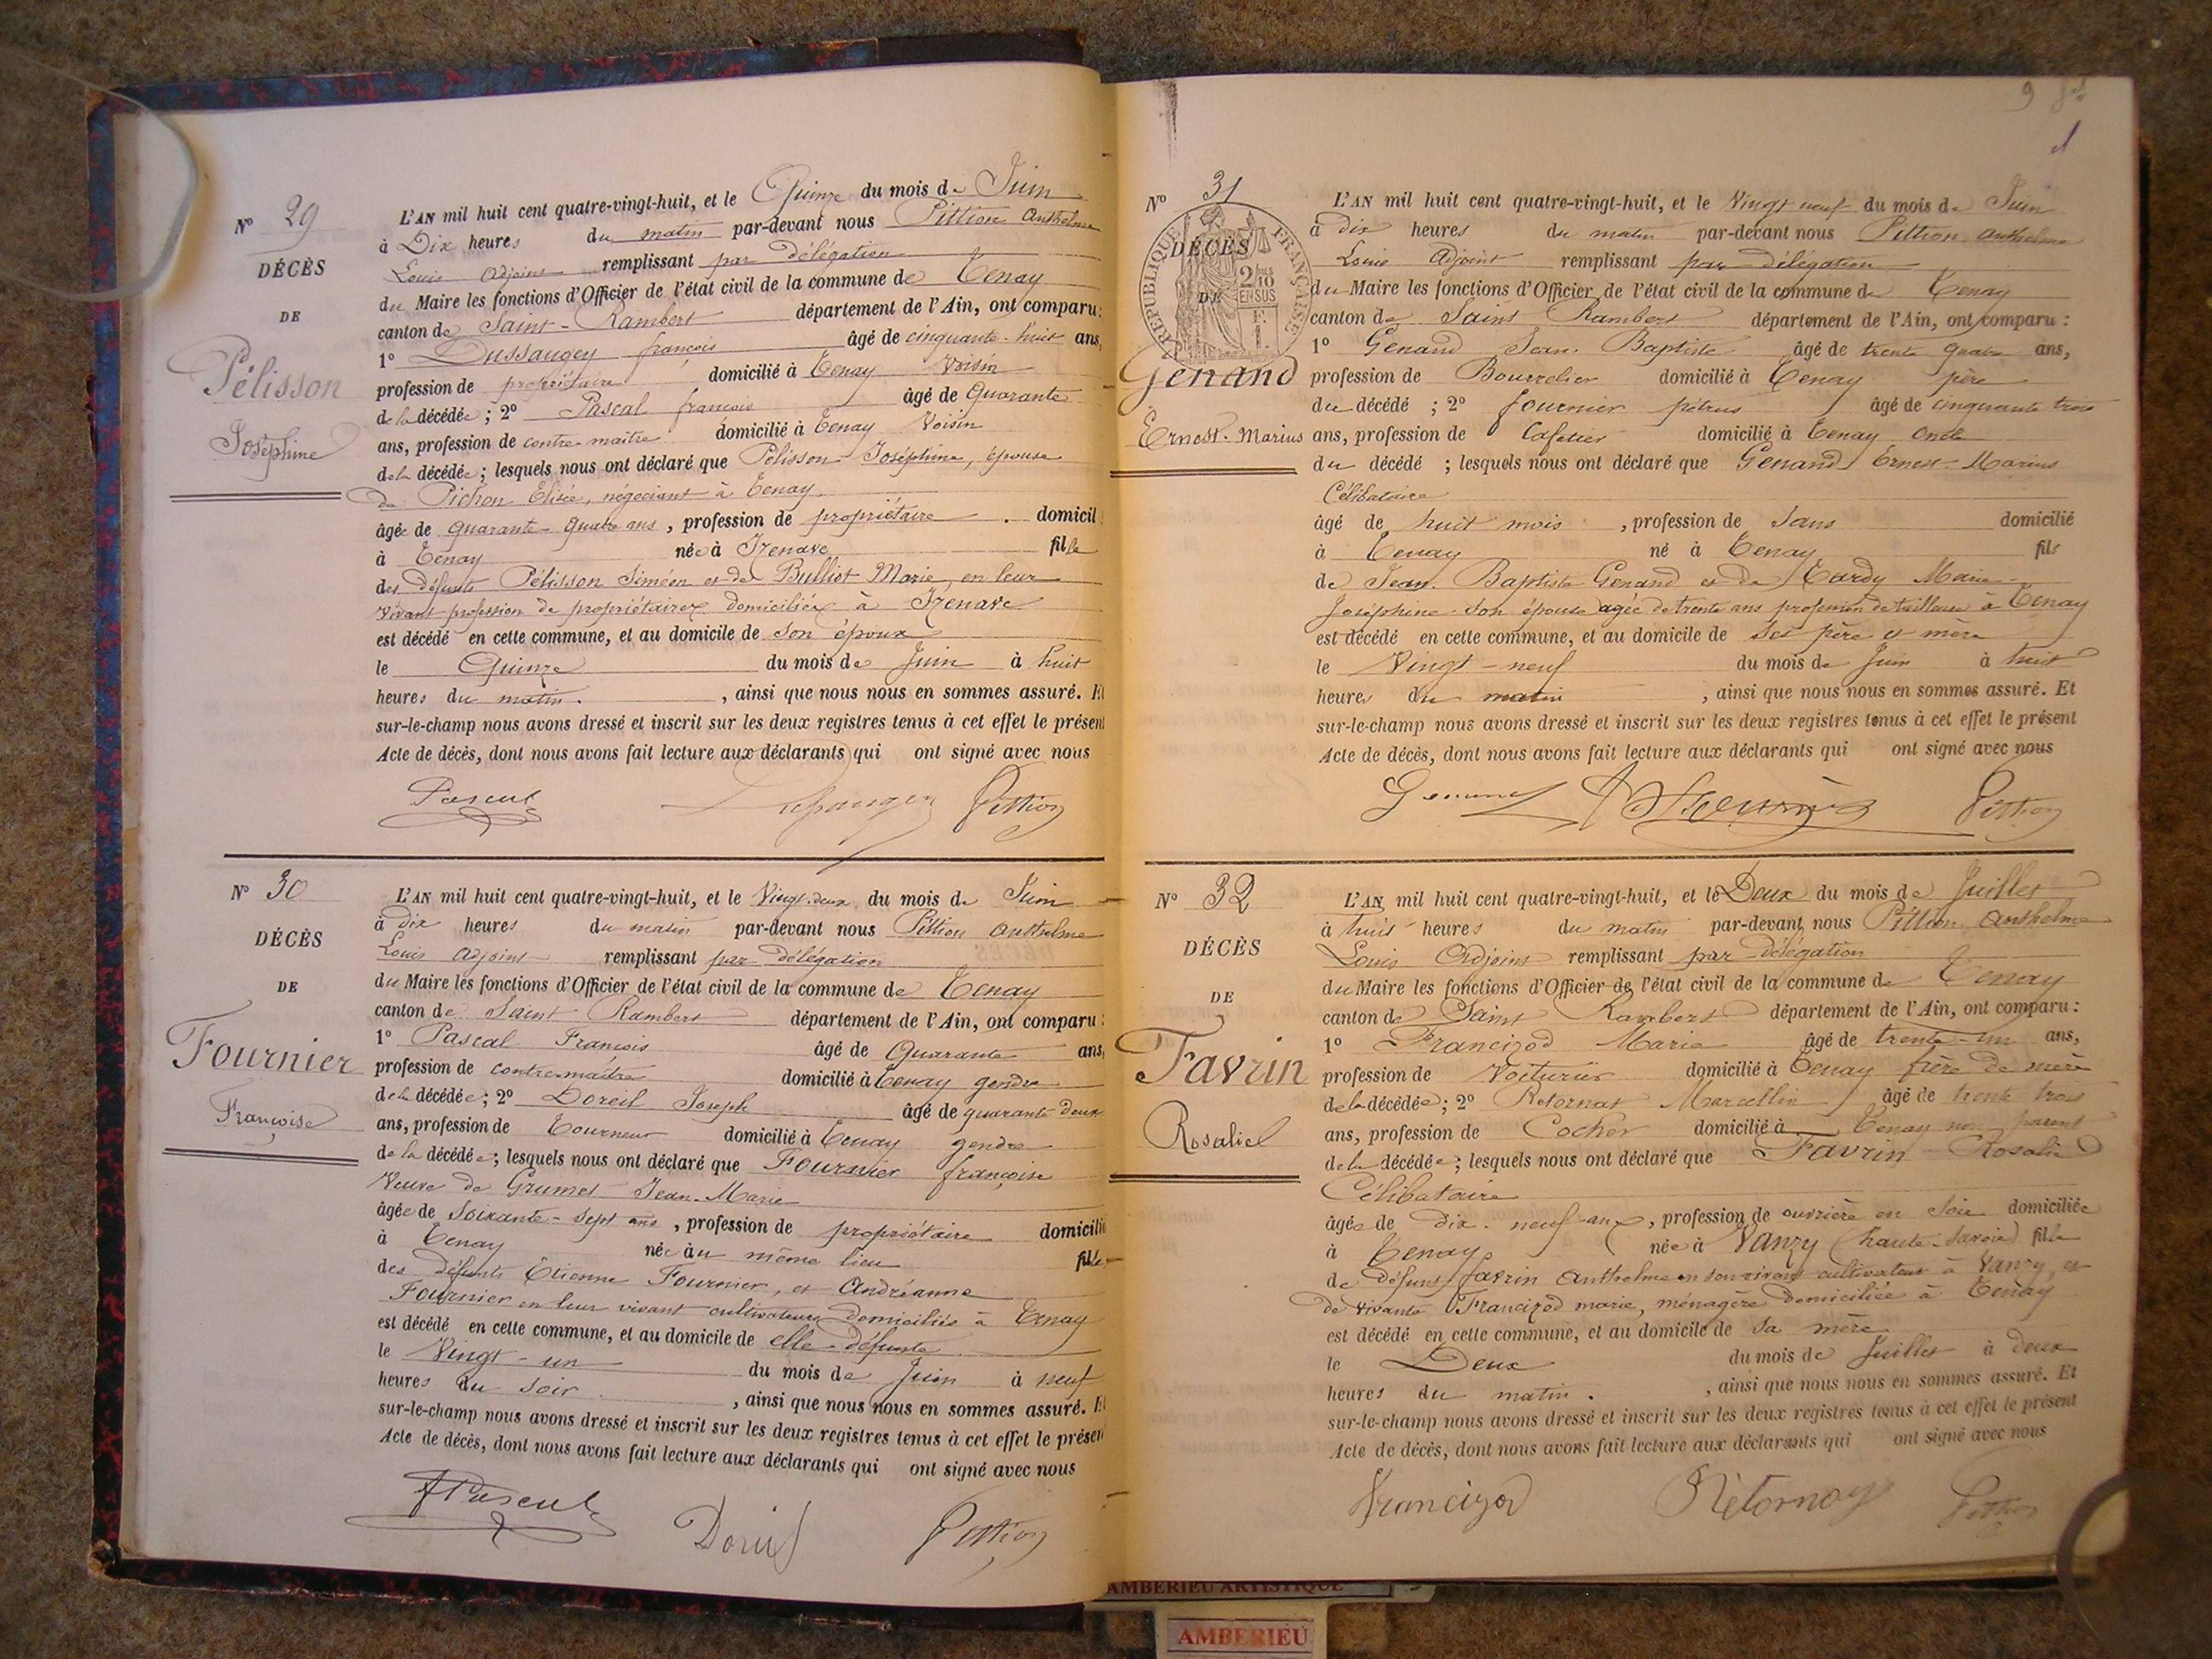 N° 29
DÉCÈS
DE
Pélisson
Joséphine
L'AN mil huit cent quatre-vingt-huit, et le Quinze du mois de Juin
à Dix heures du matin par-devant nous Pittion Anthelme
Louis Adjoint remplissant par délégation
du Maire les fonctions d'Officier de l'état civil de la commune de Tenay
canton de Saint-Rambert département de l'Ain, ont comparu:
1° Dussaugey françois âgé de cinquante-huit ans,
profession de propriétaire domicilié à Tenay Voisin
de la décédée; 2° Pascal françois âgé de Quarante
ans, profession de contre-maître domicilié à Tenay Voisin
de la décédée; lesquels nous ont déclaré que Pélisson Joséphine, épouse
de Pichon Elisée, négociant à Tenay.
âgée de quarante-quatre ans, profession de propriétaire domicil
à Tenay née à Izenave fille
des défunts Pélisson Siméon et de Bulliot Marie, en leur
vivant profession de propriétaires domiciliés à Izenave
est décédé en cette commune, et au domicile de son époux
le Quinze du mois de Juin à huit
heures du matin. , ainsi que nous nous en sommes assuré. Et
sur-le-champ nous avons dressé et inscrit sur les deux registres tenus à cet effet le présent
Acte de décès, dont nous avons fait lecture aux déclarants qui ont signé avec nous
Pascal Pittion
N° 30
DÉCÈS
DE
Fournier
Françoise
L'AN mil huit cent quatre-vingt-huit, et le Vingt-deux du mois de Juin
à dix heures du matin par-devant nous Pittion Anthelme
Louis Adjoint remplissant par délégation
du Maire les fonctions d'Officier de l'état civil de la commune de Tenay
canton de Saint Rambert département de l'Ain, ont comparu:
1° Pascal François âgé de Quarante ans,
profession de contre-maître domicilié à Tenay gendre
de la décédée; 2° Doreil Joseph âgé de quarante deux
ans, profession de Tourneur domicilié à Tenay gendre
de la décédée; lesquels nous ont déclaré que Fournier françoise
Veuve de Grumet Jean-Marie
âgée de Soixante-sept ans, profession de propriétaire domicilié
à Tenay née au même lieu fille
des défunts Étienne Fournier, et Andréanne
Fournier en leur vivant cultivateurs domiciliés à Tenay
est décédé en cette commune, et au domicile de elle défunte
le Vingt-un du mois de Juin à neuf
heures du soir. , ainsi que nous nous en sommes assuré. Et
sur-le-champ nous avons dressé et inscrit sur les deux registres tenus à cet effet le présen
Acte de décès, dont nous avons fait lecture aux déclarants qui ont signé avec nous
Pascal Doreil Pittion
9
N° 31
DÉCÈS
DE
RÉPUBLIQUE FRANÇAISE
2/10 EN SUS
Genand
Ernest-Marius
L'AN mil huit cent quatre-vingt-huit, et le Vingt neuf du mois de Juin
à dix heures du matin par-devant nous Pittion Anthelme
Louis Adjoint remplissant par délégation
du Maire les fonctions d'Officier de l'état civil de la commune de Tenay
canton de Saint Rambert département de l'Ain, ont comparu:
1° Genand Jean Baptiste âgé de trente quatre ans,
profession de Bourrelier domicilié à Tenay père
du décédé; 2° fournier pétrus âgé de cinquante trois
ans, profession de Cafetier domicilié à Tenay oncle
du décédé; lesquels nous ont déclaré que Genand Ernest-Marius
Célibataire
âgé de huit mois, profession de Sans domicilié
à Tenay né à Tenay fils
de Jean Baptiste Genand et de Tardy Marie
Joséphine son épouse agée de trente ans profession de tailleuse à Tenay
est décédé en cette commune, et au domicile de ses père et mère
le Vingt-neuf du mois de Juin à huit
heures du matin , ainsi que nous nous en sommes assuré. Et
sur-le-champ nous avons dressé et inscrit sur les deux registres tenus à cet effet le présent
Acte de décès, dont nous avons fait lecture aux déclarants qui ont signé avec nous
Genand Pittion
N° 32
DÉCÈS
DE
Favrin
Rosalie
L'AN mil huit cent quatre-vingt-huit, et le Deux du mois de Juillet
à huit heures du matin par-devant nous Pittion Anthelme
Louis Adjoint remplissant par délégation
du Maire les fonctions d'Officier de l'état civil de la commune de Tenay
canton de Saint Rambert département de l'Ain, ont comparu:
1° Francizod Marie âgé de trente-un ans,
profession de Voiturier domicilié à Tenay frère de mère
de la décédée; 2° Retornat Marcellin âgé de trente trois
ans, profession de Cocher domicilié à Tenay non parent
de la décédée; lesquels nous ont déclaré que Favrin Rosalie
Célibataire
âgée de dix-neuf ans, profession de ouvrière en Soie domiciliée
à Tenay née à Vanzy (haute-Savoie) fille
de défunt favrin Anthelme en son vivant cultivateur à Vanzy et
de vivante Francizod marie, ménagère domiciliée à Tenay
est décédé en cette commune, et au domicile de sa mère
le Deux du mois de Juillet à deux
heures du matin. , ainsi que nous nous en sommes assuré. Et
sur-le-champ nous avons dressé et inscrit sur les deux registres tenus à cet effet le présent
Acte de décès, dont nous avons fait lecture aux déclarants qui ont signé avec nous
Francizod Rétornay Pittion
AMBERIEU ARTISTIQUE
AMBERIEU